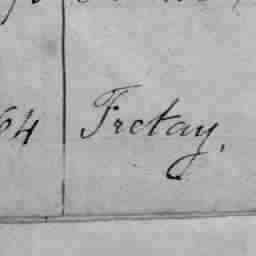 64 Fretay,